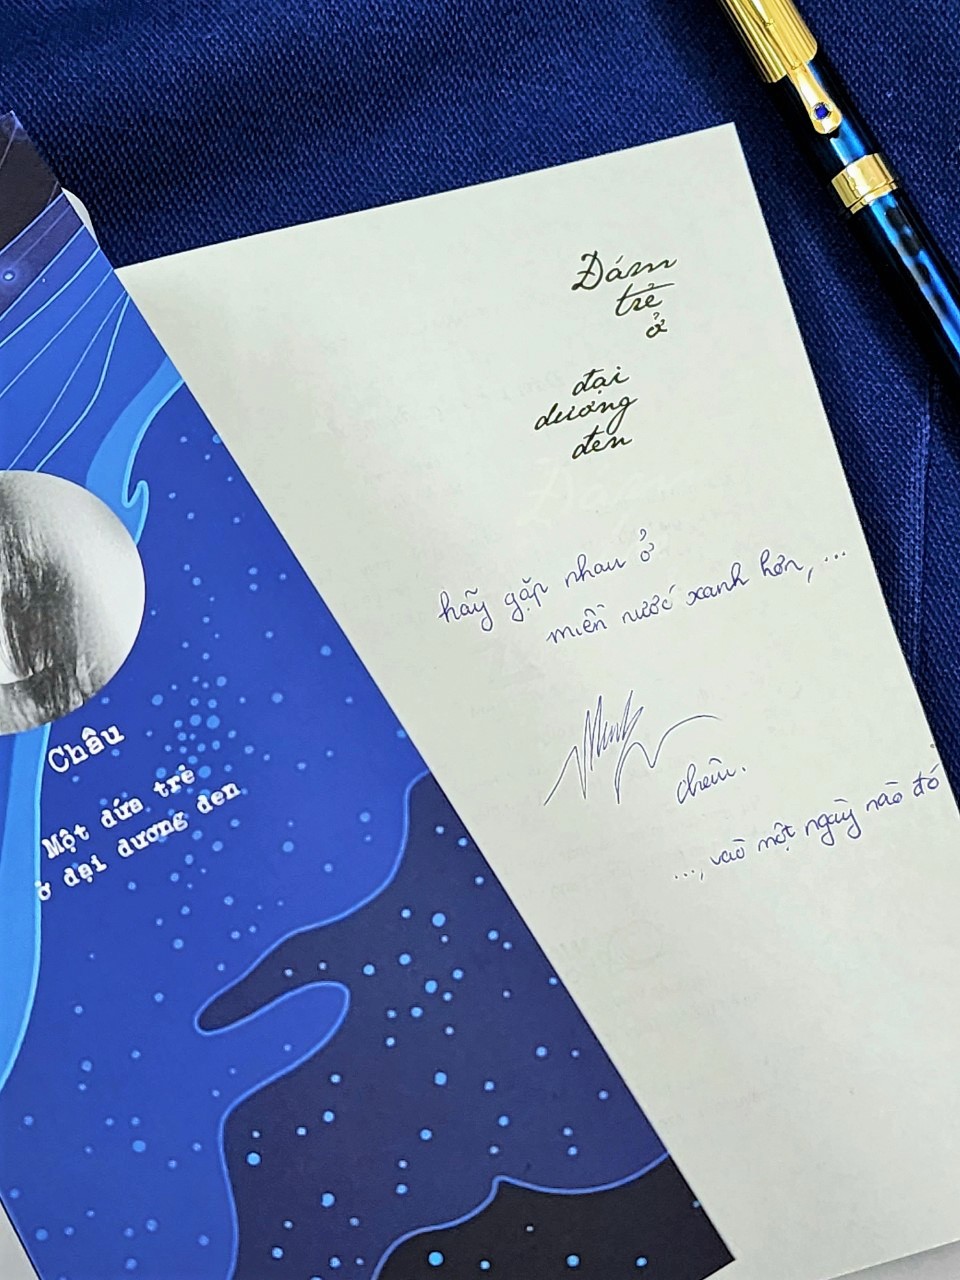 Châu
Một đứa trẻ
ở đại dương đen
Đám
trẻ
ở
đại
dương
đen
hãy gặp nhau ở
miền nước xanh hơn, ...
châu.
..., vào một ngày nào đó